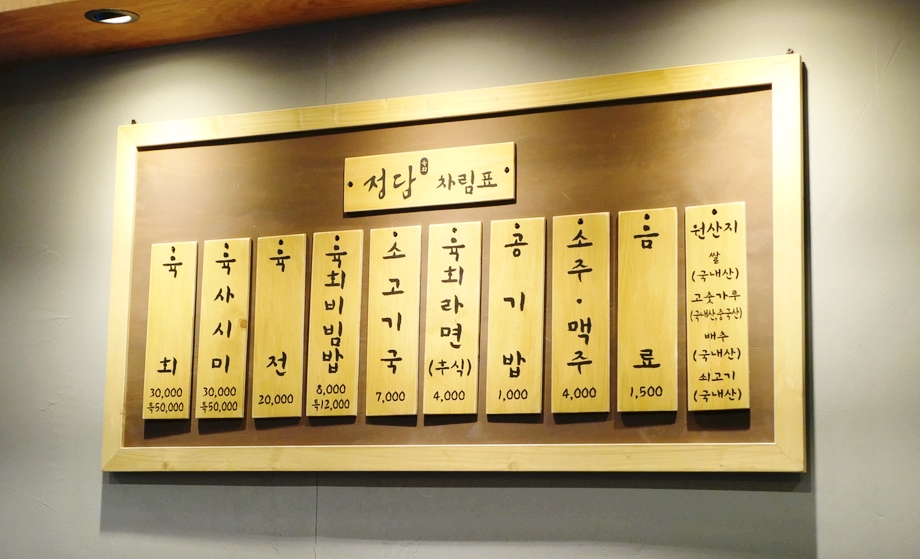 정담 차림표
육회
30,000
특50,000
육사시미
30,000
특50,000
육전
20,000
육회비빔밥
8,000
특12,000
소고기국
7,000
육회라면
(후식)
4,000
공기밥
1,000
소주·맥주
4,000
음료
1,500
원산지
쌀
(국내산)
고춧가루
(국내산,중국산)
배추
(국내산)
쇠고기
(국내산)